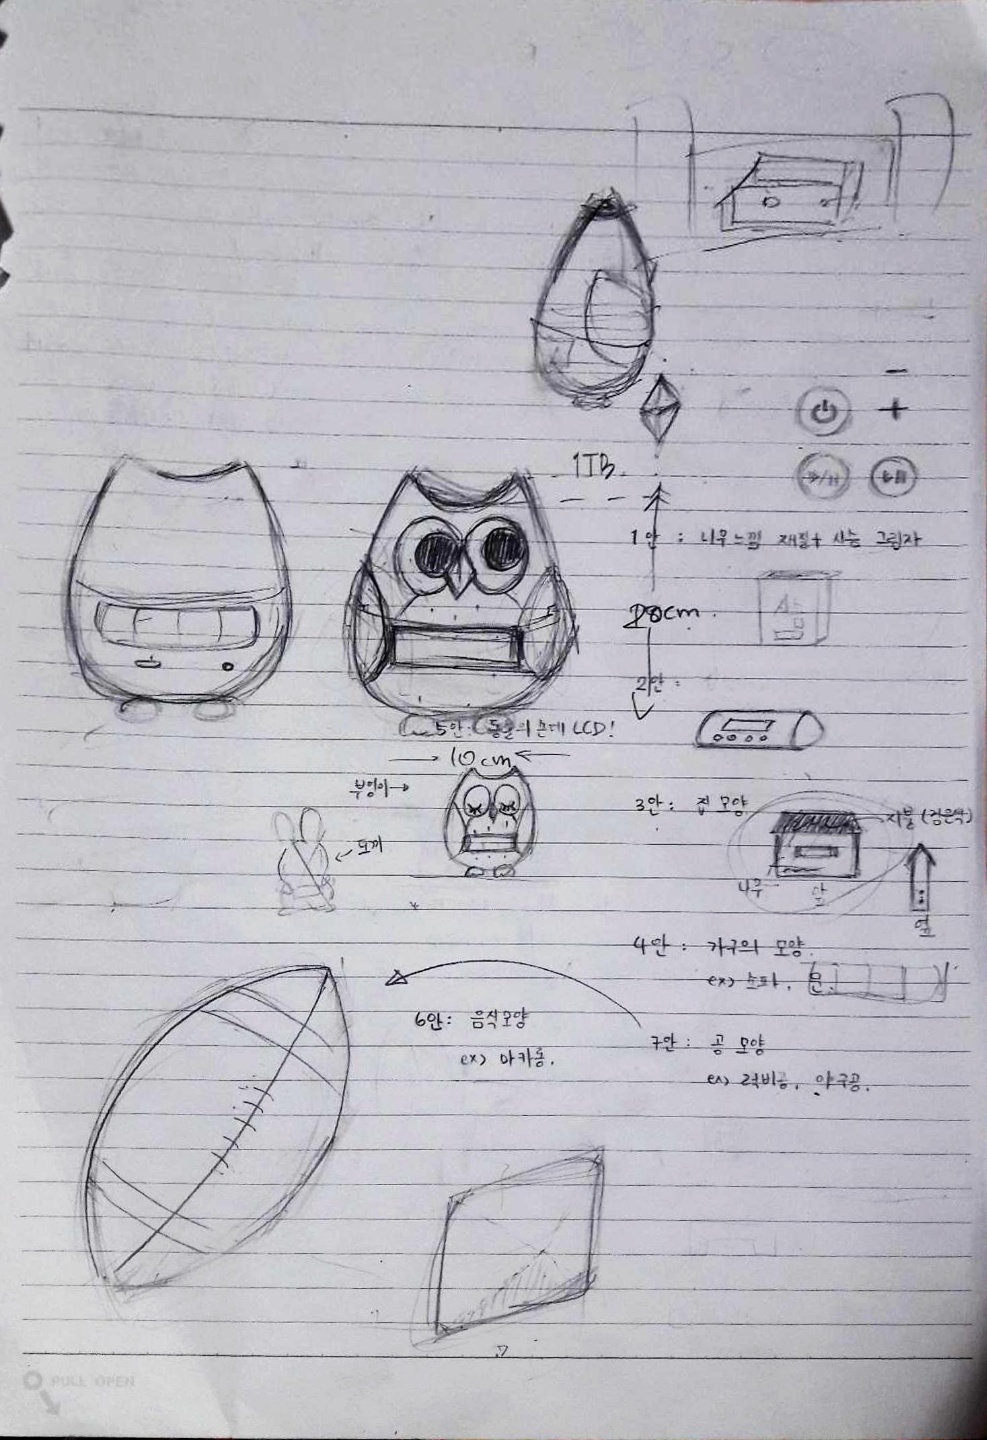 1TB
1안 : 나무느낌 재질+ 시능 그림자
20cm
2안 :
5안: 동물의 손에 LCD!
10cm
부엉이→
토끼
3안: 집 모양
지붕 (검은색)
나무
앞
옆
4안: 가구의 모양.
ex) 소파, 문.
6안: 음식모양
ex) 마카롱.
7안: 공 모양
ex) 럭비공, 야구공.
PULL OPEN